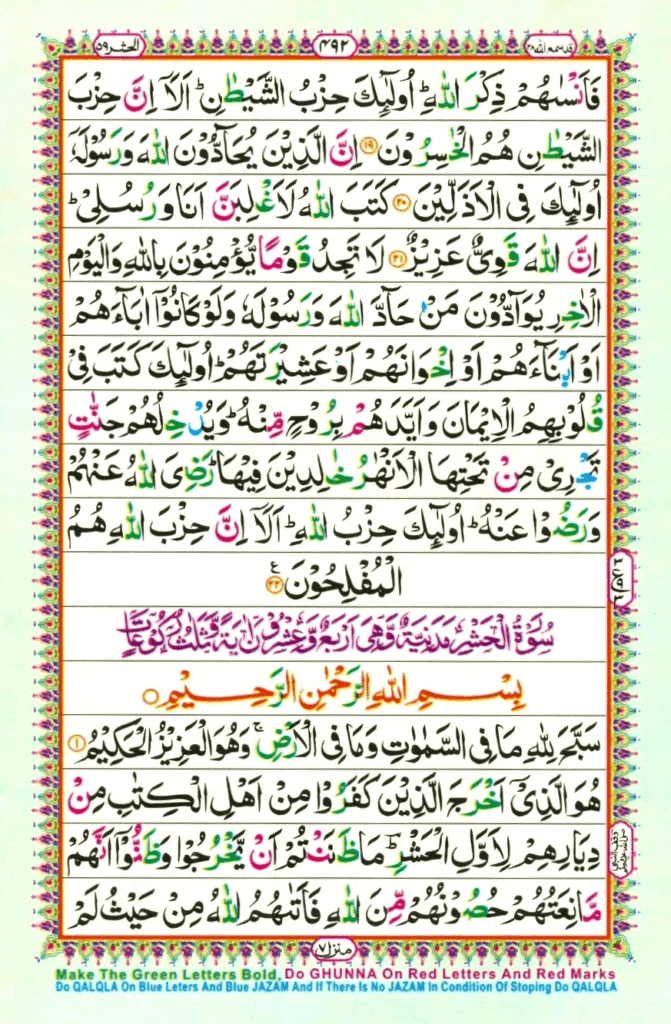 قد سمع الله ٢٨
٤٩٢
الحشر ٥٩
فَاَنْسٰىهُمْ ذِكْرَ اللّٰهِ ؕ اُولٰٓئِكَ حِزْبُ الشَّيْطٰنِ ؕ اَلَاۤ اِنَّ حِزْبَ
الشَّيْطٰنِ هُمُ الْخٰسِرُوْنَ ۝١٩ اِنَّ الَّذِيْنَ يُحَآدُّوْنَ اللّٰهَ وَرَسُوْلَهٗۤ
اُولٰٓئِكَ فِى الْاَذَلِّيْنَ ۝٢٠ كَتَبَ اللّٰهُ لَاَغْلِبَنَّ اَنَا وَرُسُلِىْ ؕ
اِنَّ اللّٰهَ قَوِىٌّ عَزِيْزٌ ۝٢١ لَا تَجِدُ قَوْمًا يُّؤْمِنُوْنَ بِاللّٰهِ وَالْيَوْمِ
الْاٰخِرِ يُوَآدُّوْنَ مَنْ حَآدَّ اللّٰهَ وَرَسُوْلَهٗ وَلَوْ كَانُوْۤا اٰبَآءَهُمْ
اَوْ اَبْنَآءَهُمْ اَوْ اِخْوَانَهُمْ اَوْ عَشِيْرَتَهُمْ ؕ اُولٰٓئِكَ كَتَبَ فِىْ
قُلُوْبِهِمُ الْاِيْمَانَ وَاَيَّدَهُمْ بِرُوْحٍ مِّنْهُ ؕ وَيُدْخِلُهُمْ جَنّٰتٍ
تَجْرِىْ مِنْ تَحْتِهَا الْاَنْهٰرُ خٰلِدِيْنَ فِيْهَا ؕ رَضِىَ اللّٰهُ عَنْهُمْ
وَرَضُوْا عَنْهُ ؕ اُولٰٓئِكَ حِزْبُ اللّٰهِ ؕ اَلَاۤ اِنَّ حِزْبَ اللّٰهِ هُمُ
الْمُفْلِحُوْنَ ۝٢٢
سُوْرَةُ الْحَشْرِ مَدَنِيَّةٌ وَّهِىَ اَرْبَعٌ وَّعِشْرُوْنَ اٰيَةً وَّثَلٰثُ رُكُوْعَاتٍ
بِسْمِ اللّٰهِ الرَّحْمٰنِ الرَّحِيْمِ
سَبَّحَ لِلّٰهِ مَا فِى السَّمٰوٰتِ وَمَا فِى الْاَرْضِ ۚ وَهُوَ الْعَزِيْزُ الْحَكِيْمُ ۝١
هُوَ الَّذِىْۤ اَخْرَجَ الَّذِيْنَ كَفَرُوْا مِنْ اَهْلِ الْكِتٰبِ مِنْ
دِيَارِهِمْ لِاَوَّلِ الْحَشْرِ ؕ مَا ظَنَنْتُمْ اَنْ يَّخْرُجُوْا وَظَنُّوْۤا اَنَّهُمْ
مَّانِعَتُهُمْ حُصُوْنُهُمْ مِّنَ اللّٰهِ فَاَتٰىهُمُ اللّٰهُ مِنْ حَيْثُ لَمْ
منزل ٧
Make The Green Letters Bold, Do GHUNNA On Red Letters And Red Marks
Do QALQLA On Blue Leters And Blue JAZAM And If There Is No JAZAM In Condition Of Stoping Do QALQLA